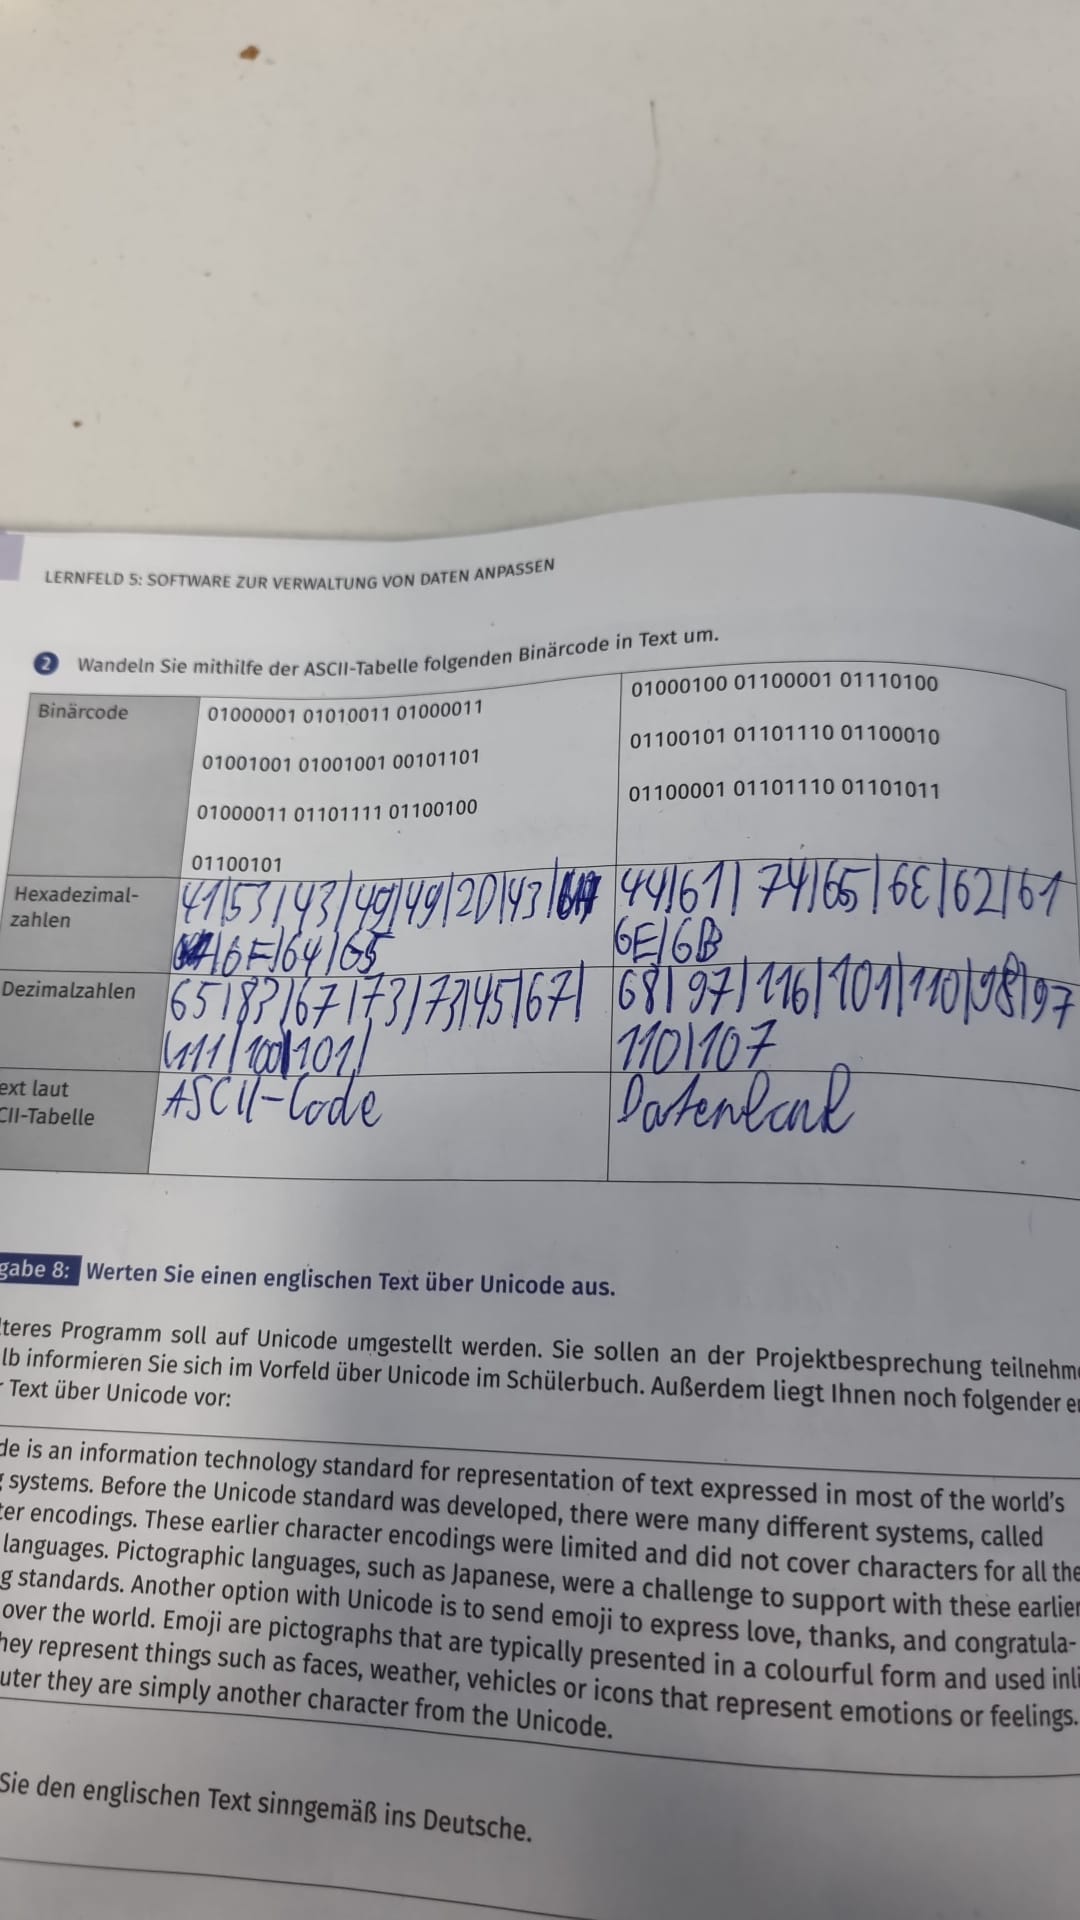 LERNFELD 5: SOFTWARE ZUR VERWALTUNG VON DATEN ANPASSEN
2 Wandeln Sie mithilfe der ASCII-Tabelle folgenden Binärcode in Text um.
Binärcode
01000001 01010011 01000011
01001001 01001001 00101101
01000011 01101111 01100100
01100101
01000100 01100001 01110100
01100101 01101110 01100010
01100001 01101110 01101011
Hexadezimal-
zahlen
41/53/43/49/49/2D/43/
/6F/64/65
44/61/74/65/6E/62/61
6E/6B
Dezimalzahlen
65/83/67/73/73/45/67/
111/100/101/
68/97/116/101/110/98/97
110/107
ext laut
CII-Tabelle
ASCII-Code
Datenbank
gabe 8: Werten Sie einen englischen Text über Unicode aus.
lteres Programm soll auf Unicode umgestellt werden. Sie sollen an der Projektbesprechung teilnehme
lb informieren Sie sich im Vorfeld über Unicode im Schülerbuch. Außerdem liegt Ihnen noch folgender e
r Text über Unicode vor:
de is an information technology standard for representation of text expressed in most of the world's
g systems. Before the Unicode standard was developed, there were many different systems, called
ter encodings. These earlier character encodings were limited and did not cover characters for all the
languages. Pictographic languages, such as Japanese, were a challenge to support with these earlier
g standards. Another option with Unicode is to send emoji to express love, thanks, and congratula-
over the world. Emoji are pictographs that are typically presented in a colourful form and used inli
hey represent things such as faces, weather, vehicles or icons that represent emotions or feelings.
uter they are simply another character from the Unicode.
Sie den englischen Text sinngemäß ins Deutsche.